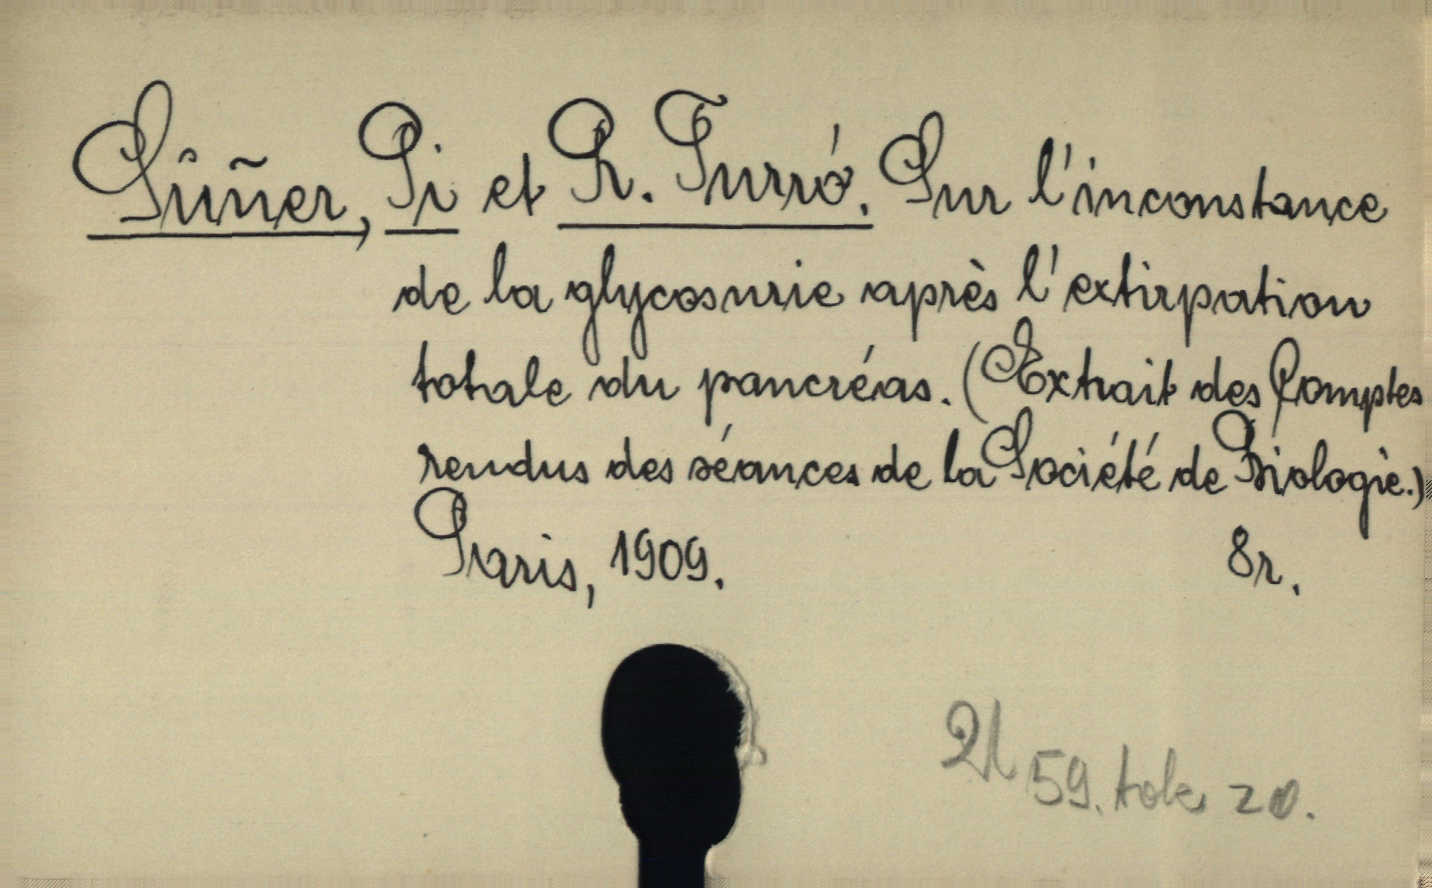 Suñer, Pi et R. Turró. Sur l'inconstance
de la glycosurie après l'extirpation
totale du pancréas. (Extrait des Comptes
rendus des séances de la Société de Biologie.)
Paris, 1909. 8r.
59. tok 20.